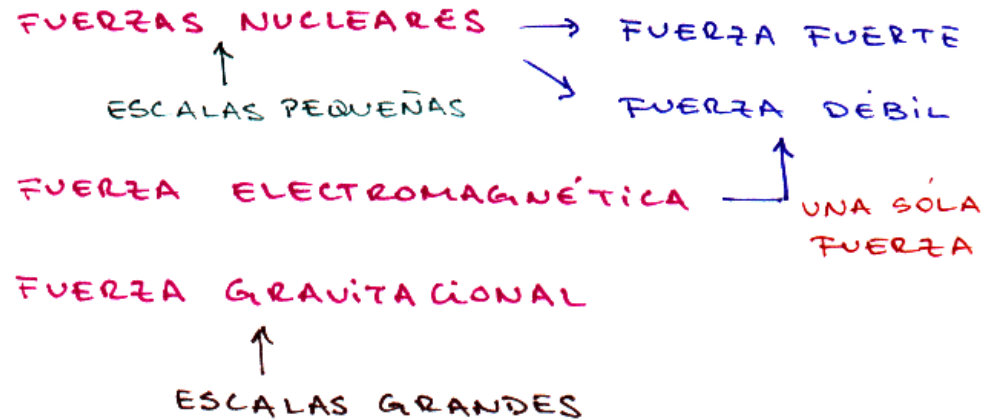 FUERZAS NUCLEARES → FUERZA FUERTE
ESCALAS PEQUEÑAS
FUERZA DÉBIL
FUERZA ELECTROMAGNÉTICA
UNA SÓLA
FUERZA
FUERZA GRAVITACIONAL
ESCALAS GRANDES